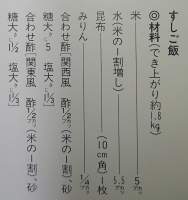 すしご飯
◎材料(でき上がり約1.8kg)
米 5カップ
水(米の1割増し) 5.5カップ
昆布 (10cm角)1枚
みりん 1/4カップ
合わせ酢[関西風 酢1/2カップ(米の1割)、砂
糖大さじ5 塩大さじ1 1/3]
合わせ酢[関東風 酢1/2カップ(米の1割)、砂
糖大さじ1 1/2 塩大さじ1 1/3]